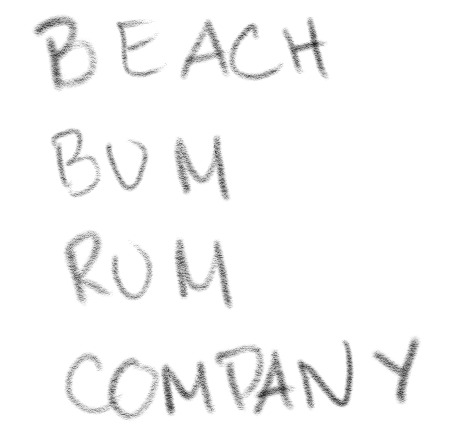 BEACH
BUM
RUM
COMPANY